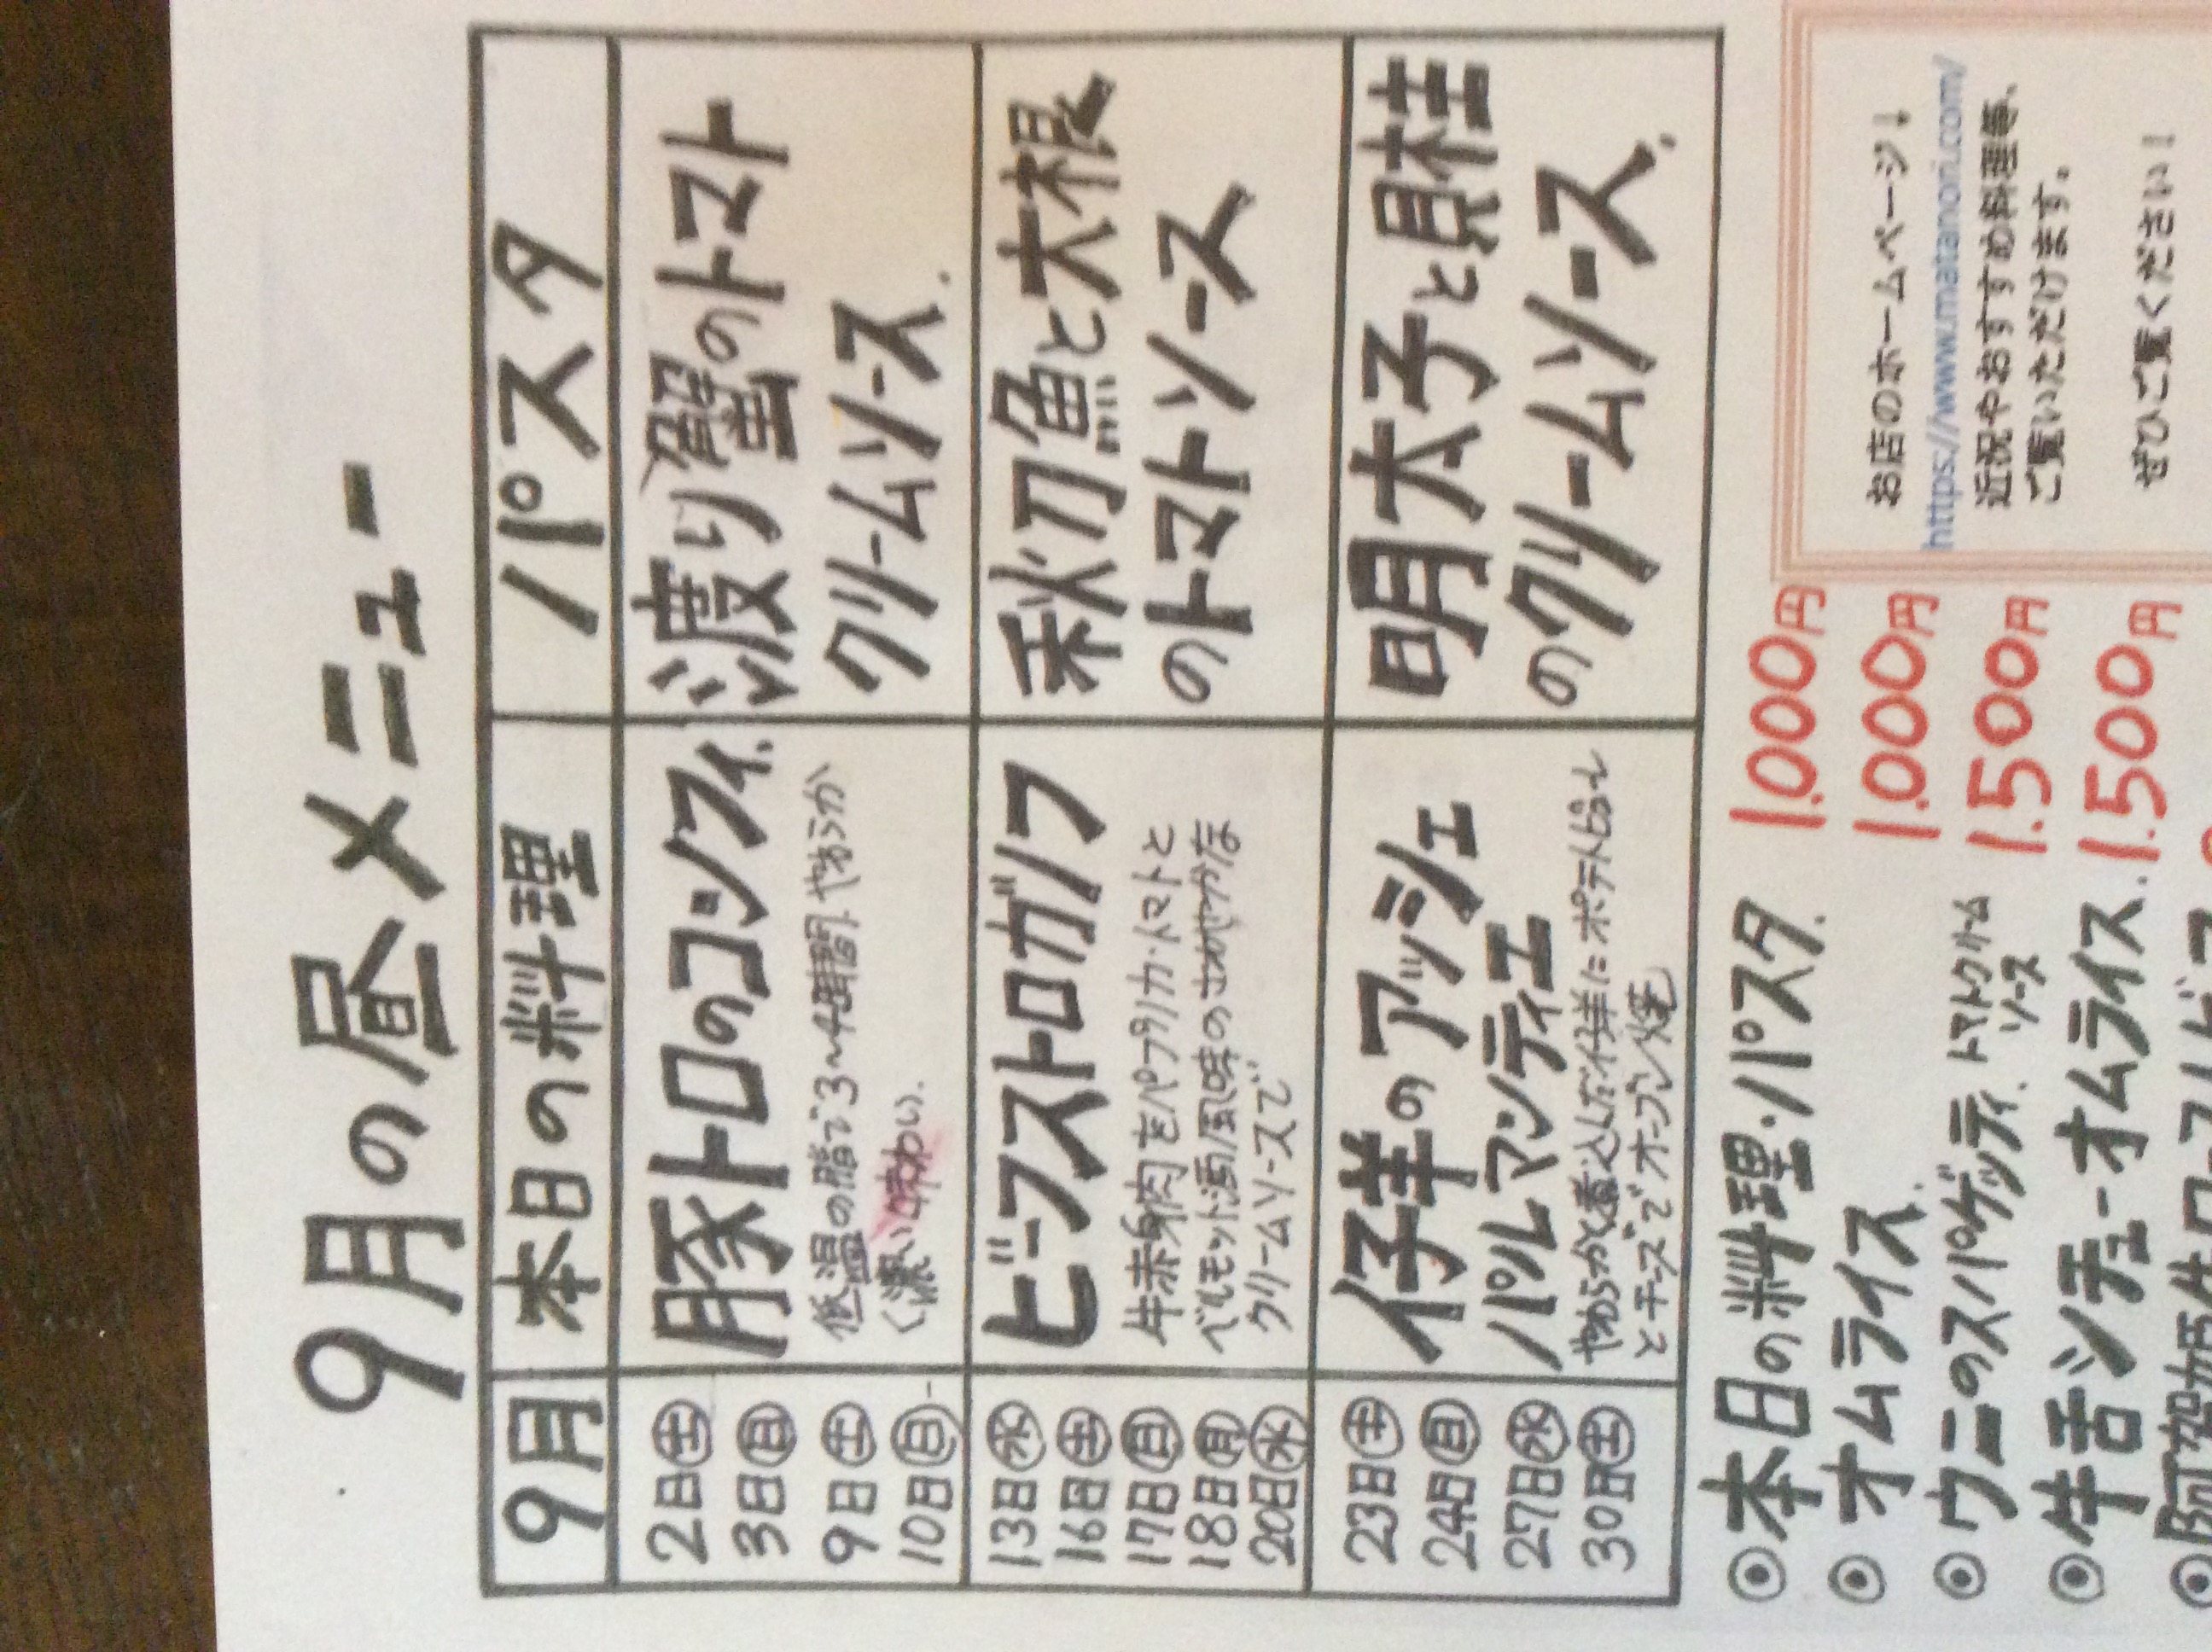 9月の昼メニュー
9月 本日の料理 パスタ
2日(土)
3日(日)
9日(土)
10日(日)
豚トロのコンフィ.
低温の脂で3〜4時間.やわらか
く濃い味わい.
渡り蟹のトマト
クリームソース.
13日(水)
16日(土)
17日(日)
18日(月)
20日(水)
ビーフストロガノフ
牛赤身肉をパプリカ・トマトと
ベルモット酒風味のさわやかな
クリームソースで
秋刀魚と大根
のトマトソース
23日(土)
24日(日)
27日(水)
30日(土)
仔羊のアッシェ
パルマンティエ
やわらかく煮込んだ仔羊にポテトピューレ
とチーズでオーブン焼
明太子と貝柱
のクリームソース.
◉本日の料理・パスタ. 1.000円
◉オムライス. 1.000円
◉ウニのスパゲッティ. トマトクリームソース 1.500円
◉牛舌シチューオムライス. 1.500円
お店のホームページ↓
https://www.matanori.com/
近況やおすすめ料理等、
ご覧いただけます。
ぜひご覧ください！